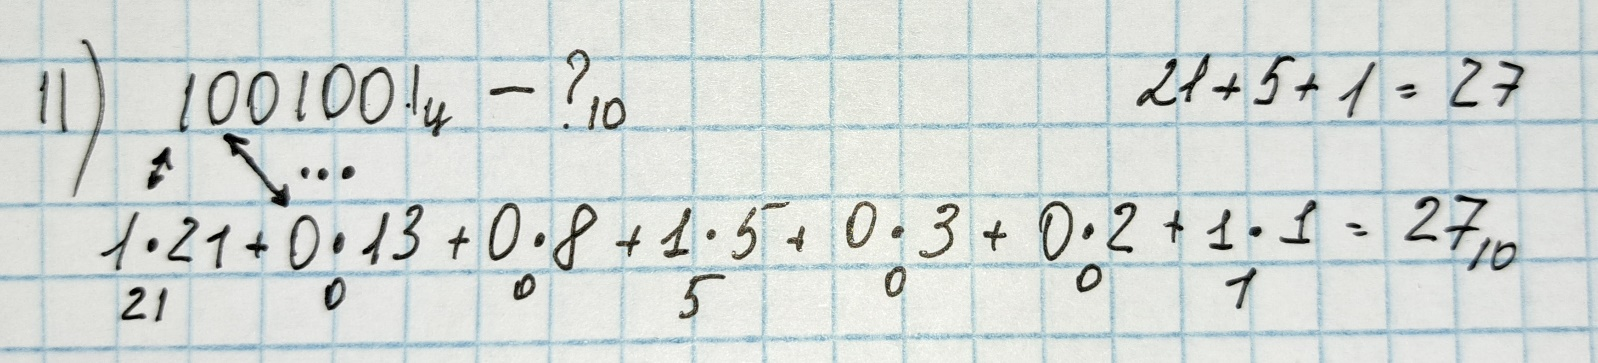 11) 1001001ц - ?10 21+5+1=27
...
1·21+0·13+0·8+1·5+0·3+0·2+1·1=27,10
21 0 0 5 0 0 1